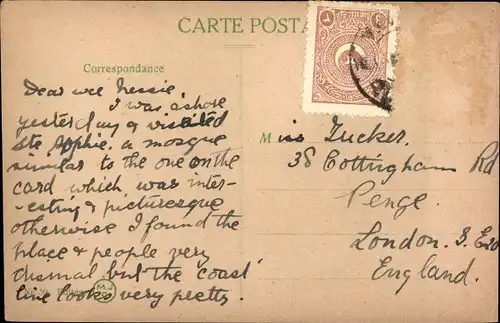 CARTE POSTA
Correspondance
Dear wee Nessie.
I was ashore
yesterday & visited
Ste Sophie. a mosque
similar to the one on the
card which was inter-
-esting & picturesque
otherwise I found the
place & people very
dismal but the coast
line looks very pretty.
Miss Tucker.
38 Cottingham Rd
Penge.
London. S.E.20
England.
M.J.C.